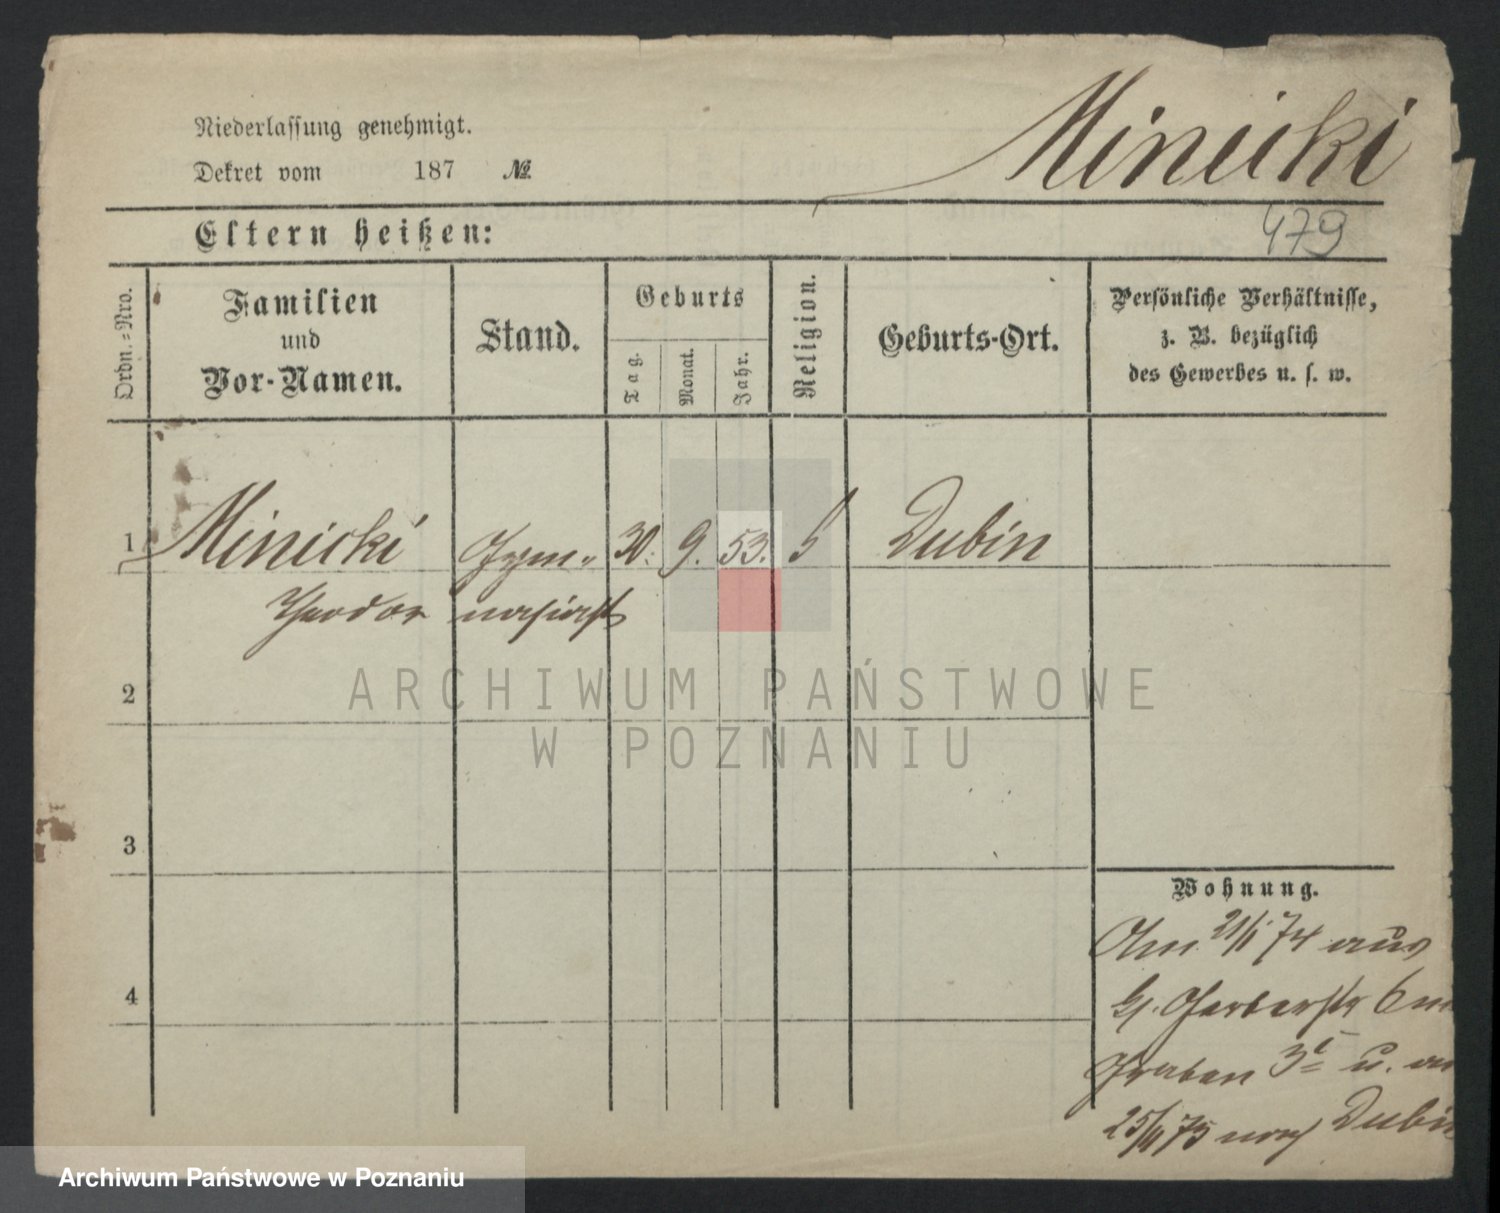 Niederlassung genehmigt.
Minicki
Dekret vom 187 №
Eltern heißen:
479
Ordn.=Nro.
Familien
und
Vor-Namen.
Stand.
Geburts
Tag.
Monat.
Jahr.
Religion.
Geburts-Ort.
Persönliche Verhältnisse,
z. B. bezüglich
des Gewerbes u. s. w.
1 Minicki Gym- 30. 9. 53. Dubin
Theodor nasiast
2
ARCHIWUM PAŃSTWOWE
W POZNANIU
3
Wohnung.
Am 21/1 74 aus
Gerberstr 6
4
Graben 3 u.
25/ 75 nach Dubin
Archiwum Państwowe w Poznaniu